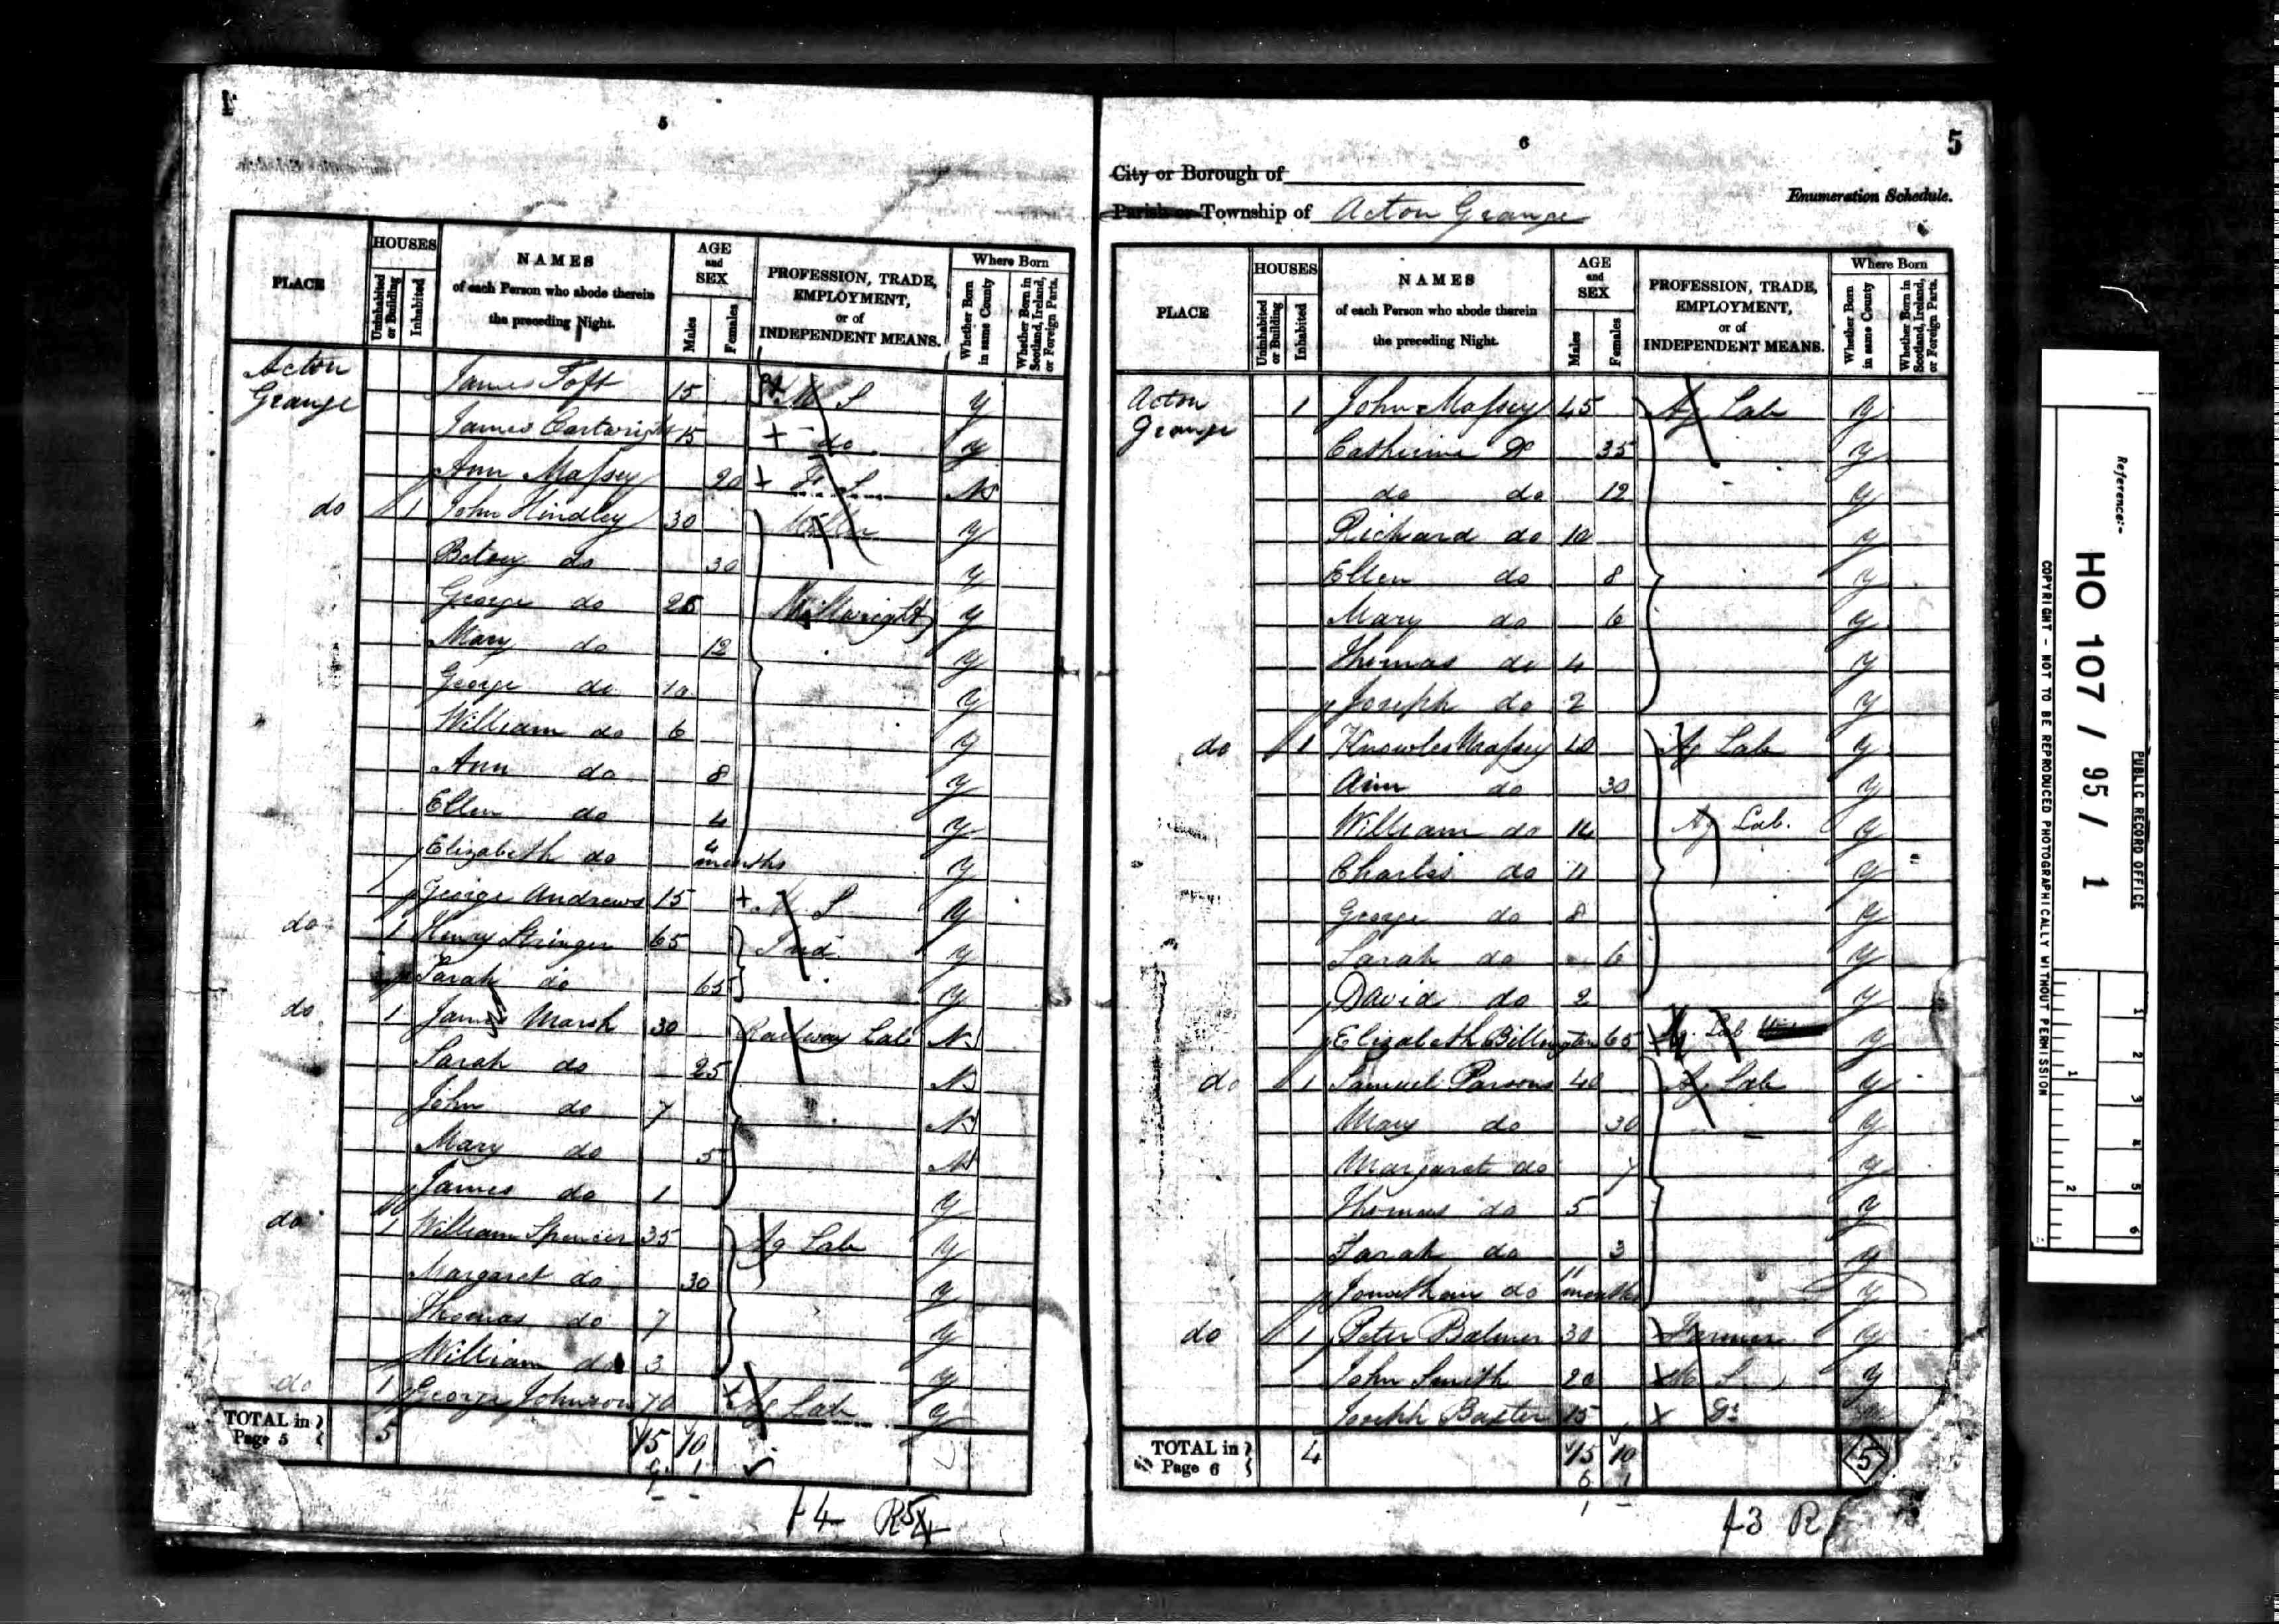 5
PLACE
HOUSES
Uninhabited or Building
Inhabited
NAMES
of each Person who abode therein
the preceding Night.
AGE
and
SEX
Males
Females
PROFESSION, TRADE,
EMPLOYMENT,
or of
INDEPENDENT MEANS.
Where Born
Whether Born in same County
Whether Born in Scotland, Ireland, or Foreign Parts.
Acton Grange James Toft 15 M S Y
James Cartwright 15 + do Y
Ann Massey 20 + F S N
do 1 John Hindley 30 Miller Y
Betsy do 30 Y
George do 25 Millwright Y
Mary do 12 Y
George do 10 Y
William do 6 Y
Ann do 8 Y
Ellen do 4 Y
Elizabeth do months Y
George Andrews 15 + M S Y
do 1 Henry Stringer 65 Ind Y
Sarah do 65 Y
do 1 James Marsh 30 Railway Lab N
Sarah do 25 N
John do 7 N
Mary do 5 N
James do 1 Y
do 1 William Spencer 35 Ag Lab Y
Margaret do 30 Y
Thomas do 7 Y
William do 3 Y
do 1 George Johnson 70 + Ag Lab Y
TOTAL in Page 5 5 15 10
14 R 5
6
5
City or Borough of
Parish or Township of Acton Grange
Enumeration Schedule.
PLACE
HOUSES
Uninhabited or Building
Inhabited
NAMES
of each Person who abode therein
the preceding Night.
AGE
and
SEX
Males
Females
PROFESSION, TRADE,
EMPLOYMENT,
or of
INDEPENDENT MEANS.
Where Born
Whether Born in same County
Whether Born in Scotland, Ireland, or Foreign Parts.
Acton Grange 1 John Massey 45 Ag Lab Y
Catherine Do 35 Y
do do 12 Y
Richard do 10 Y
Ellen do 8 Y
Mary do 6 Y
Thomas do 4 Y
Joseph do 2 Y
do 1 Knowles Massey 40 Ag Lab Y
Ann do 30 Y
William do 14 Ag Lab. Y
Charles do 11 Y
George do 8 Y
Sarah do 6 Y
David do 2 Y
Elizabeth Billington 65 Ag. Lab Y
do 1 Samuel Parsons 40 Ag Lab Y
Mary do 30 Y
Margaret do 7 Y
Thomas do 5 Y
Sarah do 3 Y
Jonathan do 11 months Y
do 1 Peter Balmer 30 Farmer Y
John Smith 20 M S Y
Joseph Baxter 15 Do
TOTAL in Page 6 4 15 10
6 1
5
13 R
Reference:-
HO 107 / 95 / 1
PUBLIC RECORD OFFICE
COPYRIGHT - NOT TO BE REPRODUCED PHOTOGRAPHICALLY WITHOUT PERMISSION
1 2 3 4 5 6
1 2